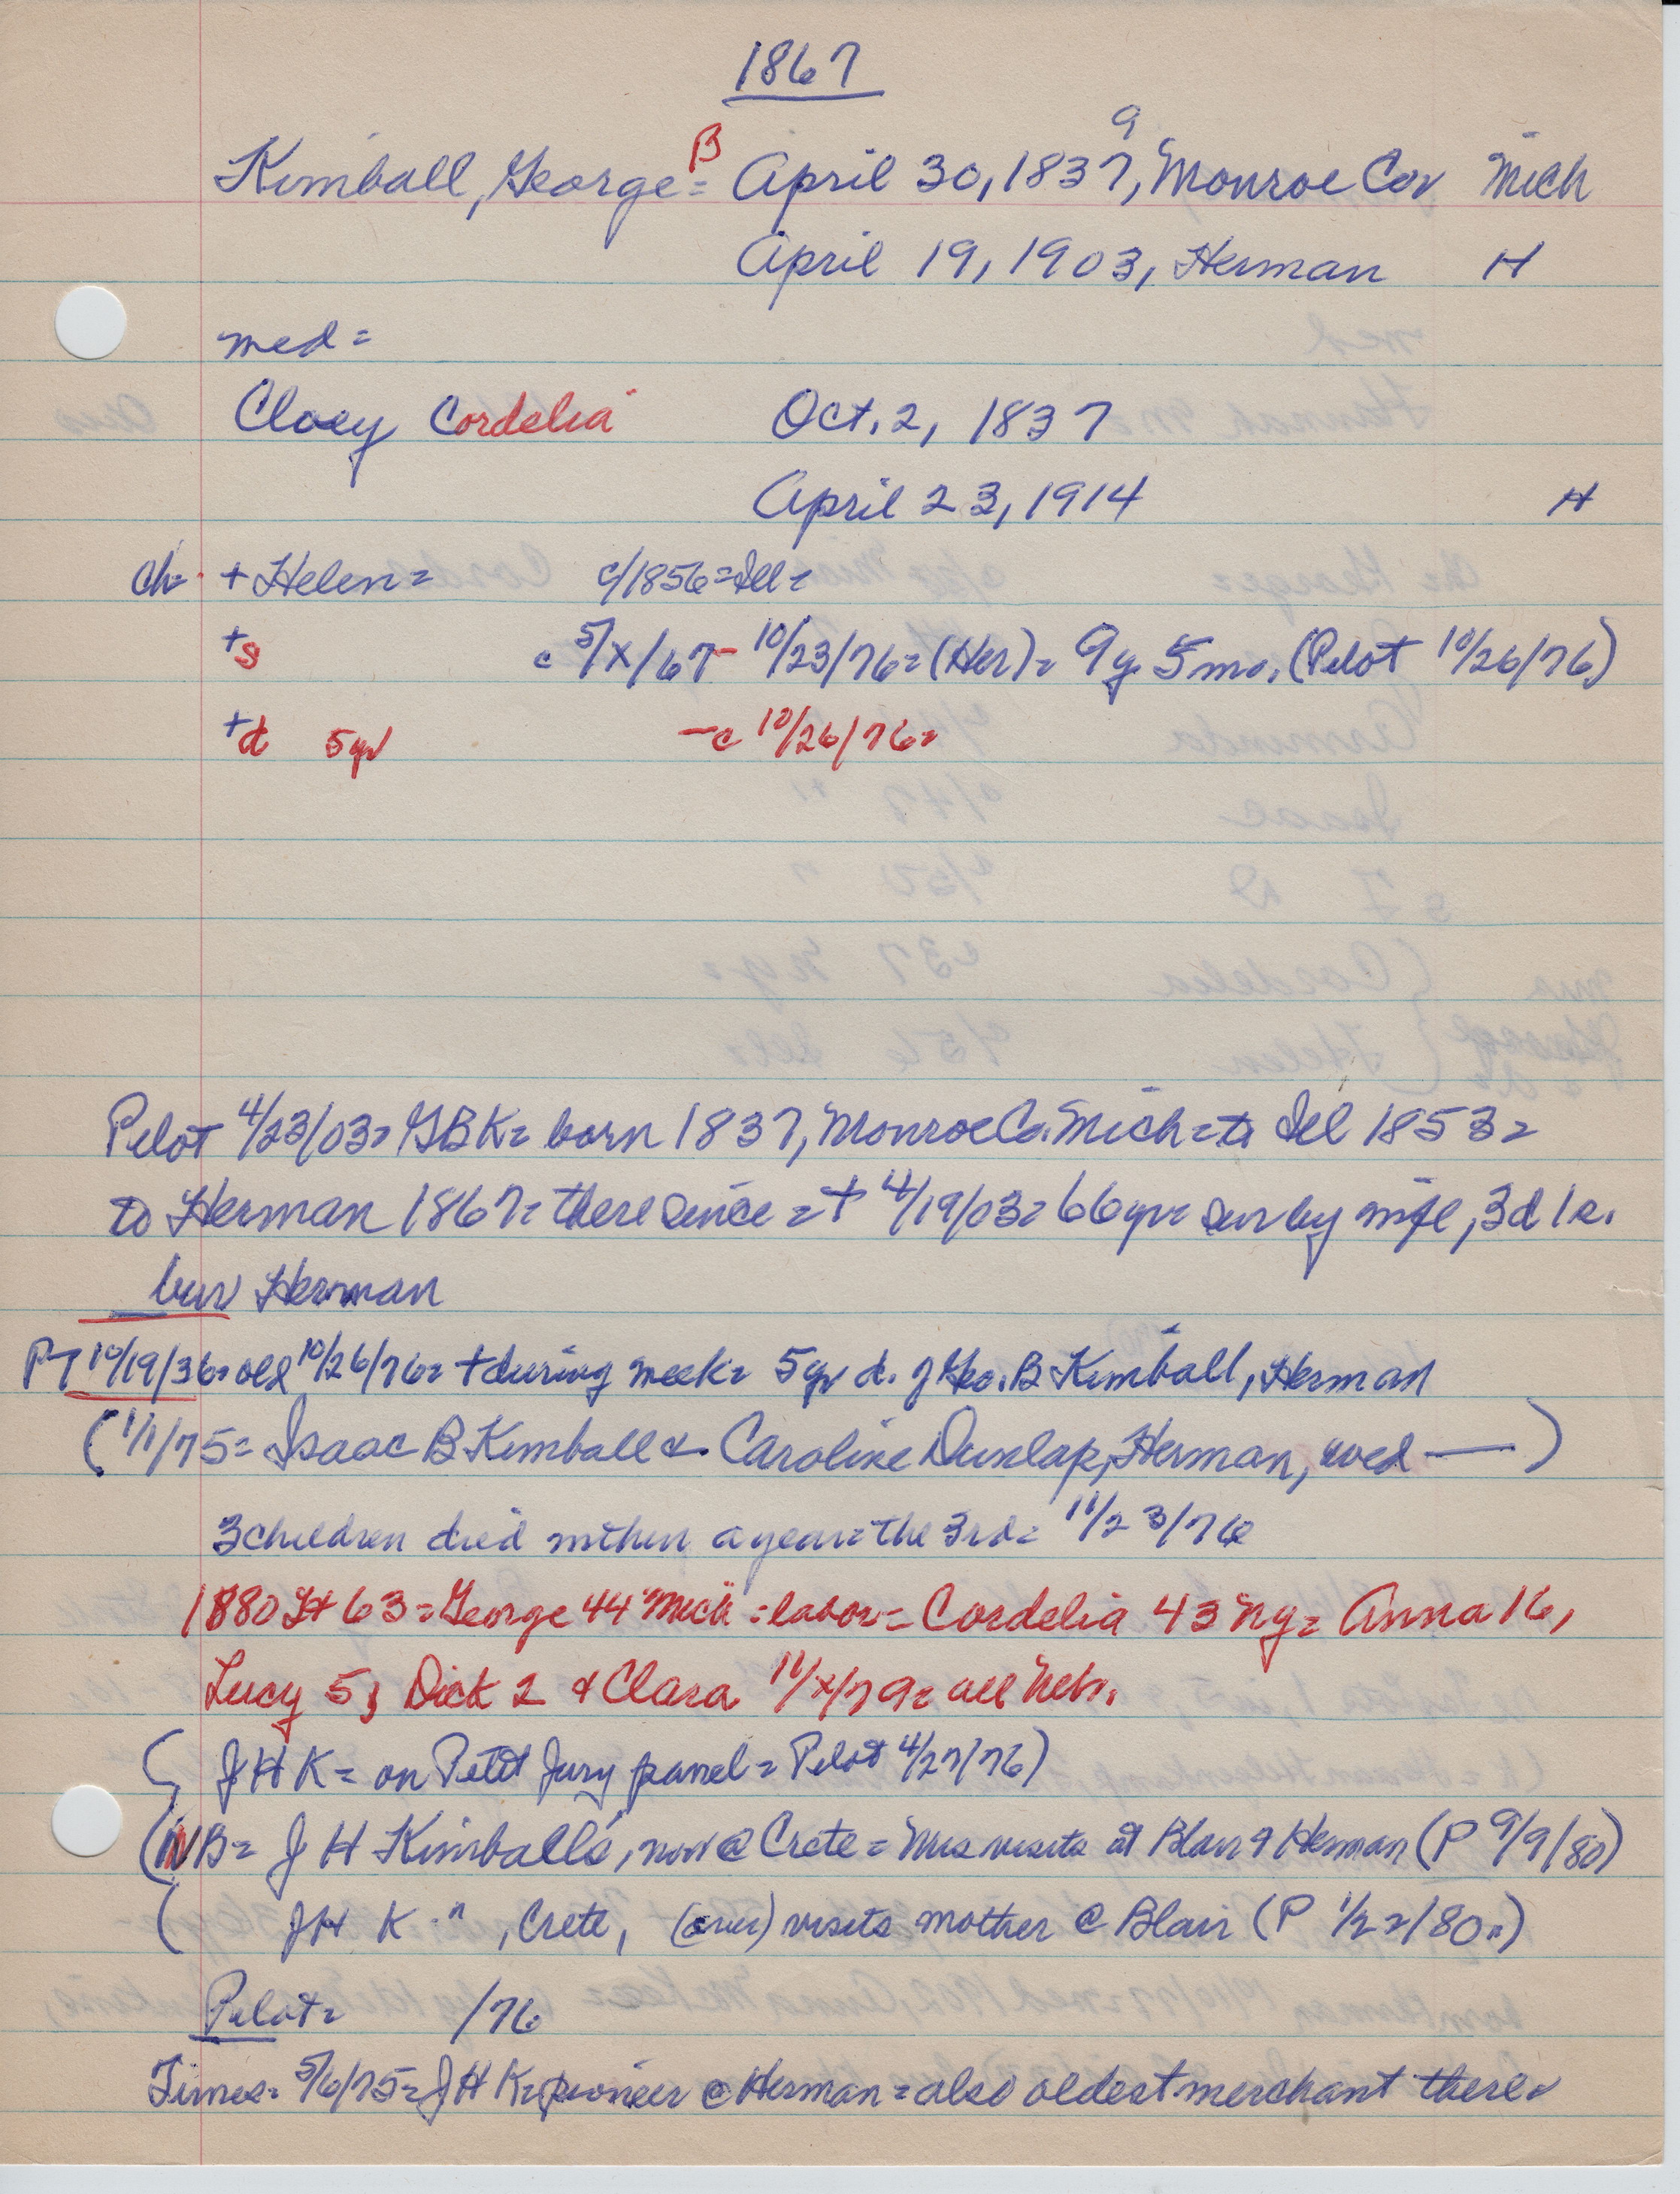 1867
9
Kimball, George B = April 30, 1837, Monroe Co Mich
April 19, 1903, Herman H
med =
Cloey Cordelia Oct. 2, 1837
April 23, 1914 H
Ch = + Helen = c/1856 = Ill =
+ s c 5/X/67 - 10/23/76 = (Her) = 9y 5mo. (Pilot 10/26/76)
+ d 5yr - c 10/26/76 =
Pilot 4/23/03 = GBK = born 1837, Monroe Co. Mich = to Ill 1853 =
to Herman 1867 = there since = + 4/19/03 = 66yr = sur by wife, 3d 1s.
bur Herman
PT 10/19/36 = old 10/26/76 = + during week = 5yr d. of Geo. B Kimball, Herman
(1/1/75 = Isaac B Kimball & Caroline Dunlap, Herman, wed — )
3 children died within a year = the 3rd = 11/23/76
1880 H 63 = George 44 Mich = labor = Cordelia 43 Ny = Anna 16,
Lucy 5, Dick 2 & Clara 11/X/79 = all Neb.
( J H K = on Petit Jury panel = Pilot 4/27/76)
(NB = J H Kimball's, now @ Crete = Mrs visits at Blair & Herman (P 9/9/80)
( JH K ", Crete, (over) visits mother @ Blair (P 1/22/80.)
Pilot = /76
Times = 5/6/75 = J H K = pioneer @ Herman = also oldest merchant there